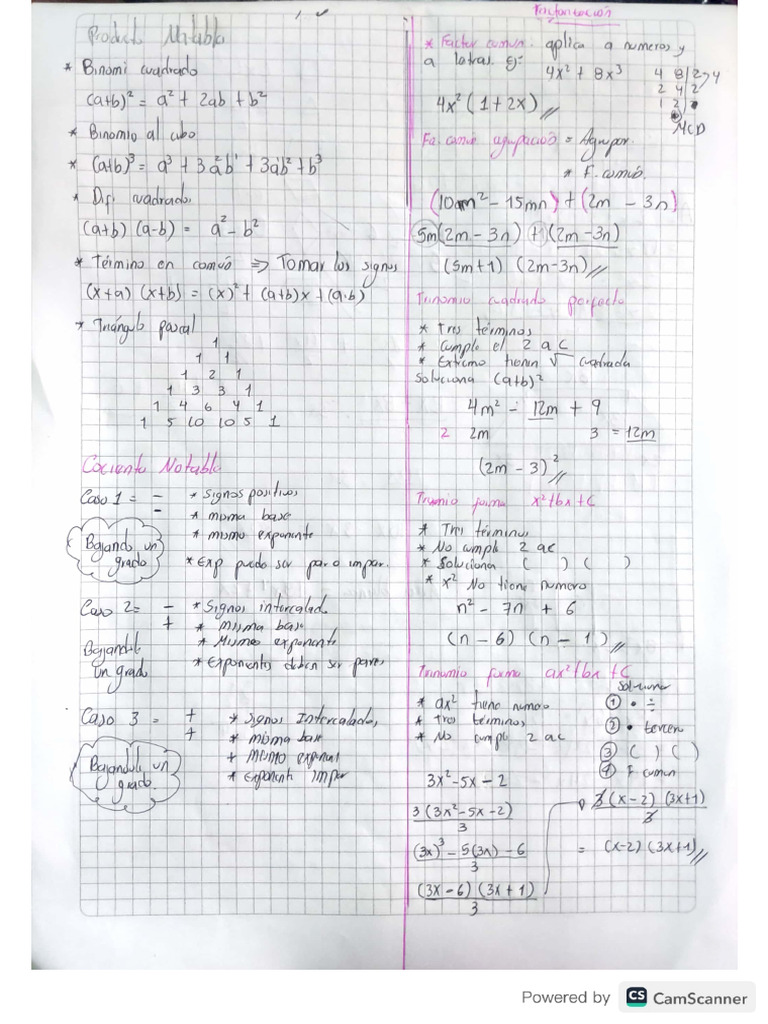 Producto Notable
* Binomi cuadrado
(a+b)² = a² + 2ab + b²
* Binomio al cubo
* (a+b)³ = a³ + 3a²b¹ + 3a¹b² + b³
* Dif. cuadrado,
(a+b) (a-b) = a² - b²
* Término en comuó ⇒ Tomar los signos
(x+a) (x+b) = (x)² + (a+b)x + (a·b)
* Triángulo pascal
1
1 1
1 2 1
1 3 3 1
1 4 6 4 1
1 5 10 10 5 1
Cociente Notable
Caso 1 = - * Signos positivos
- * misma base
* mismo exponente
* Exp puedo ser par o impar.
Bajando un
grado
Caso 2 = - * Signos intercalad
+ * misma base
* Mismo exponente
* Exponentes deben ser pares
Bajandole
un grado
Caso 3 = + * Signos Intercalados,
+ * misma base
+ Mismo exponent
* Exponente impar
Bajandole un
grado.
Factorización
* Factor comun: aplica a numeros y
a letras. Ej:
4x² + 8x³
4 8 | 2 → 4
2 4 2
1 2
MCD
4x² (1 + 2x) //
Fa. comun agrupación = Agrupar.
* F. comuó.
(10m² - 15mn) + (2m - 3n)
5m(2m - 3n) + 1(2m - 3n)
(5m+1) (2m-3n) //
Trinomio cuadrado perfecto
* Tres términos
* Cumple el 2 a c
* Extremo tienen √ cuadrada
Soluciona (a+b)²
4m² - 12m + 9
2 2m 3 = 12m
(2m - 3)² //
Trinomio forma x²+bx+c
* Tres términos
* No cumple 2 ac
* Soluciona ( ) ( )
* x² No tiene numero
n² - 7n + 6
(n - 6) (n - 1) //
Trinomio forma ax²+bx+c
* ax² tiene numero
* Tres términos
* No cumple 2 ac
Solucionar
① • ÷
② • tercero
③ ( ) ( )
④ F comun
3x² - 5x - 2
3 (3x² - 5x - 2)
3
(3x)³ - 5(3x) - 6
3
(3x - 6) (3x + 1)
3
3 (x - 2) (3x+1)
3
= (x-2) (3x+1) //
Powered by CS CamScanner